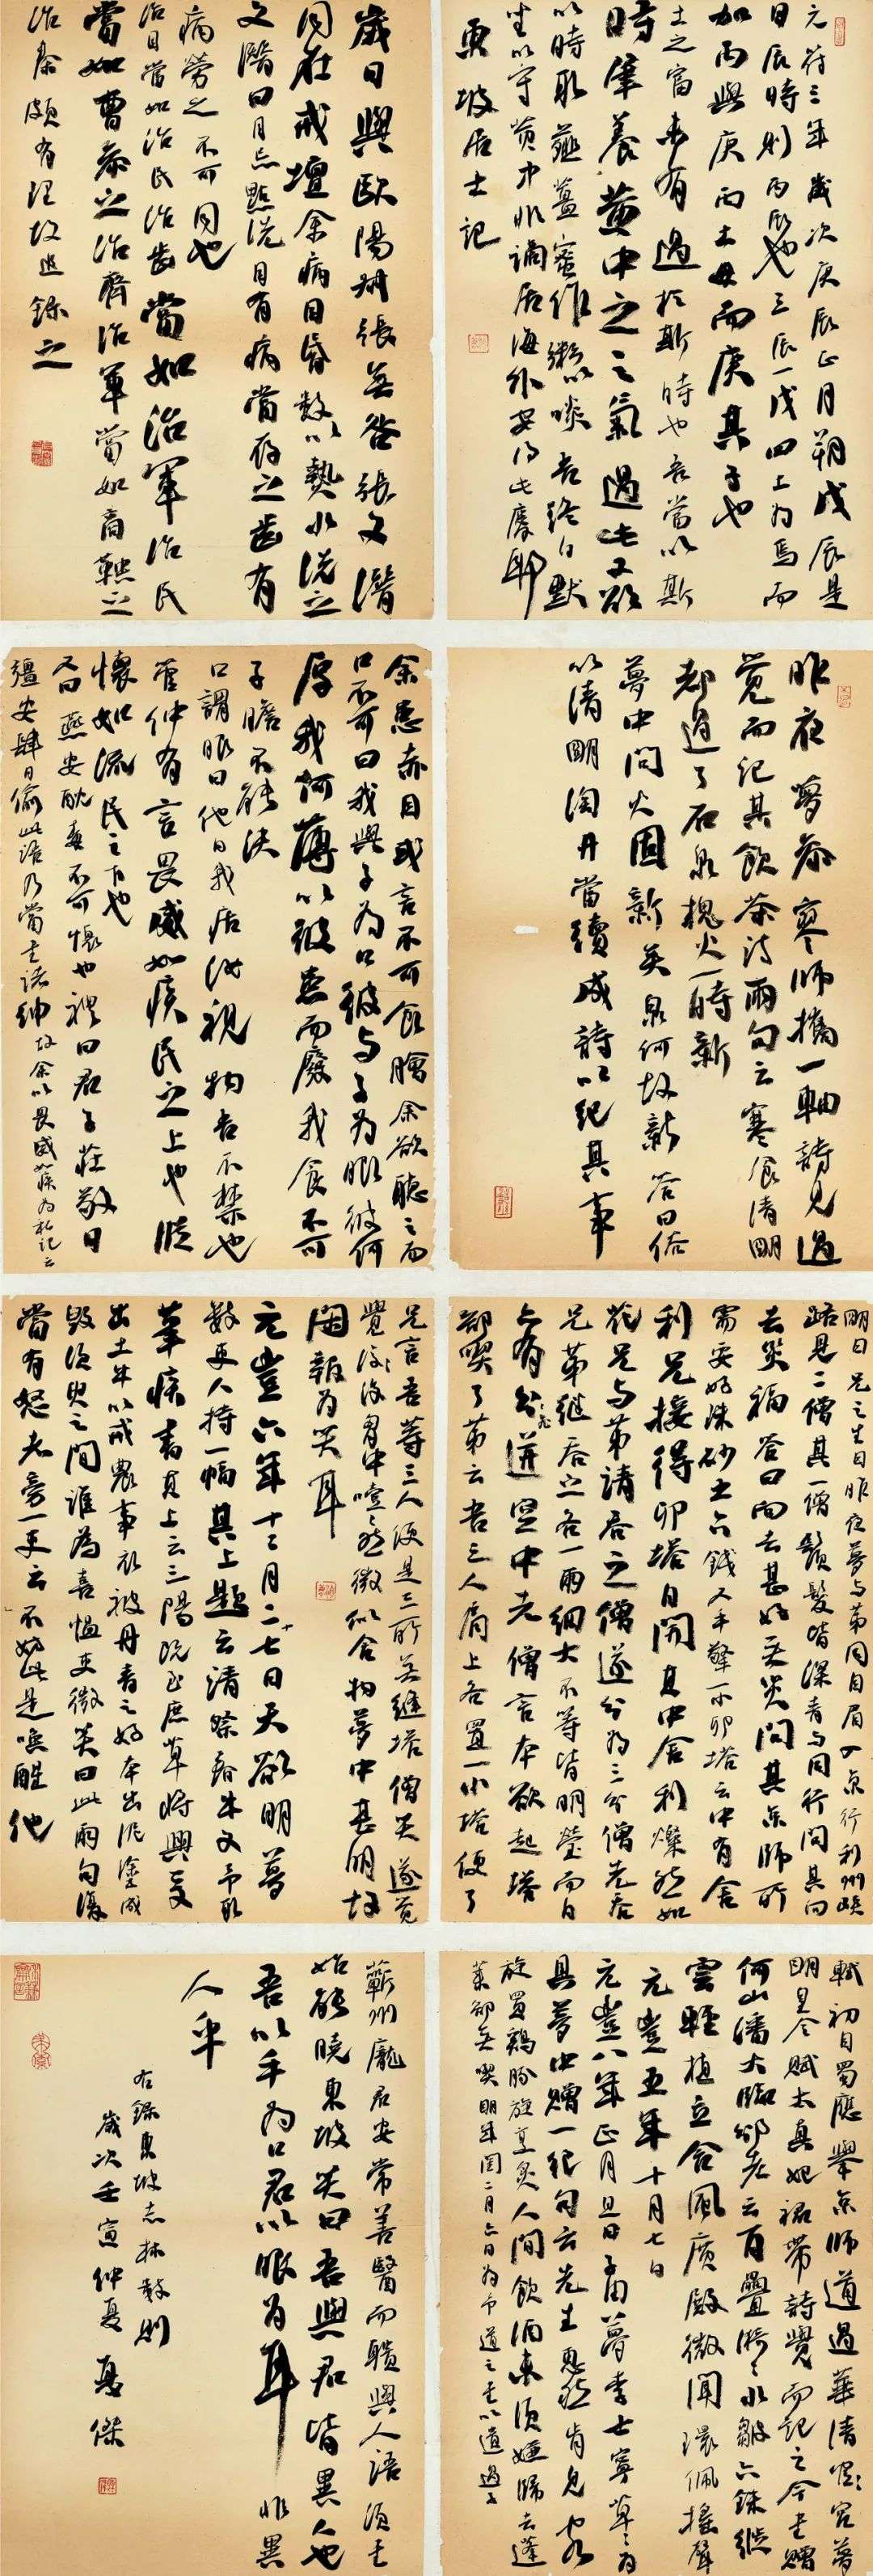 元符三年歲次庚辰正月朔戊辰是
日辰時則丙辰也三辰一戊四土為焉而
加丙與庚丙土母而庚其子也
土之富未有過於斯時也吾當以斯
時肇養黃中之之氣過此又欲
以時取薤薑蜜作粥以啖吾終日默
坐以守黃中非謫居海外安得此慶耶
東坡居士記
歲日與歐陽叔張無咎張文潛
同在戒壇余病目昏數以熱水洗之
文潛曰目忌點洗目有病當存之齒有
病勞之不可同也
治目當如治民治齒當如治軍治民
當如曹參之治齊治軍當如商鞅之
治秦頗有理故追錄之
昨夜夢參寥師攜一軸詩見過
覺而記其飲茶詩兩句云寒食清明
都過了石泉槐火一時新
夢中問火固新矣泉何故新答曰俗
以清明淘井當續成詩以紀其事
余患赤目或言不可食膾余欲聽之而
口不可曰我與子為口彼與子為眼彼何
厚我何薄以彼患而廢我食不可
子瞻不能決
口謂眼曰他日我痁汝視物吾不禁也
管仲有言畏威如疾民之上也從
懷如流民之下也
又曰燕安酖毒不可懷也禮曰君子莊敬日
彊安肆日偷此語乃當書諸紳故余以畏威如疾為私記云
明日兄之生日昨夜夢與弟同自眉入京行利州峽
路見二僧其一僧鬚髮皆深青與同行問其向
去災福答曰向去甚好無災問其京師所
需要好硃砂五六錢又手擎一小卯塔云中有舍
利兄接得卯塔自開其中舍利燦然如
花兄與弟請吞之僧遂分為三分僧先吞
兄弟繼吞之各一兩細大不等皆明瑩而白
亦有飛迸空中者僧言本欲起塔
卻喫了弟云吾三人肩上各置一小塔便了
兄言吾等三人便是三所無縫塔僧笑遂覺
覺後胸中噎噎然微似含物夢中甚明故
閑報為笑耳
元豐六年十二月二十七日天欲明夢
數吏人持一幅其上題云請祭春牛文予取
筆疾書其上云三陽既至庶草將興爰
出土牛以戒農事衣被丹青之好本出泥塗成
毀須臾之間誰為喜慍吏微笑曰此兩句復
當有怒者旁一吏云不妨此是喚醒他
軾初自蜀應舉京師道過華清宮夢
明皇令賦太真妃裙帶詩覺而記之今書贈
何山潘大臨邠老云百疊漪漪水皺六銖縰縰
雲輕植立含風廣殿微聞環佩搖聲
元豐五年十月七日
元豐八年正月旦日子由夢李士寧草草為
具夢中贈一絕句云先生惠然肯見客
旋買雞豚旋烹炙人間飲酒未須嫌歸去蓬
萊卻無喫明年閏二月六日為予道之書以遺過子
蘄州龐君安常善醫而聵與人語須書
始能曉東坡笑曰吾與君皆異人也
吾以手為口君以眼為耳非異
人乎
右錄東坡志林數則
歲次壬寅仲夏 傑